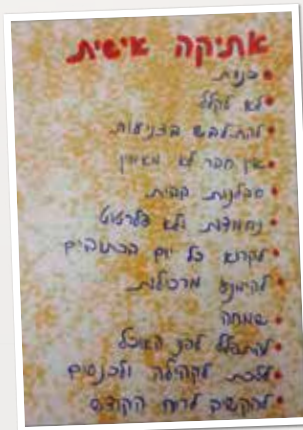 אתיקה אישית
• כנות.
• לא לקלל
• להתלבש בצניעות.
• אין חבר לא מאמין
• סבלנות בבית.
• נחמדות ולא פלרטוט
• לקרוא כל יום הכתובים
• להימנע מרכילות.
• שמחה
• להתפלל לפני האוכל
• ללכת לקהילה ולכנסים
• להקשיב לרוח הקודש